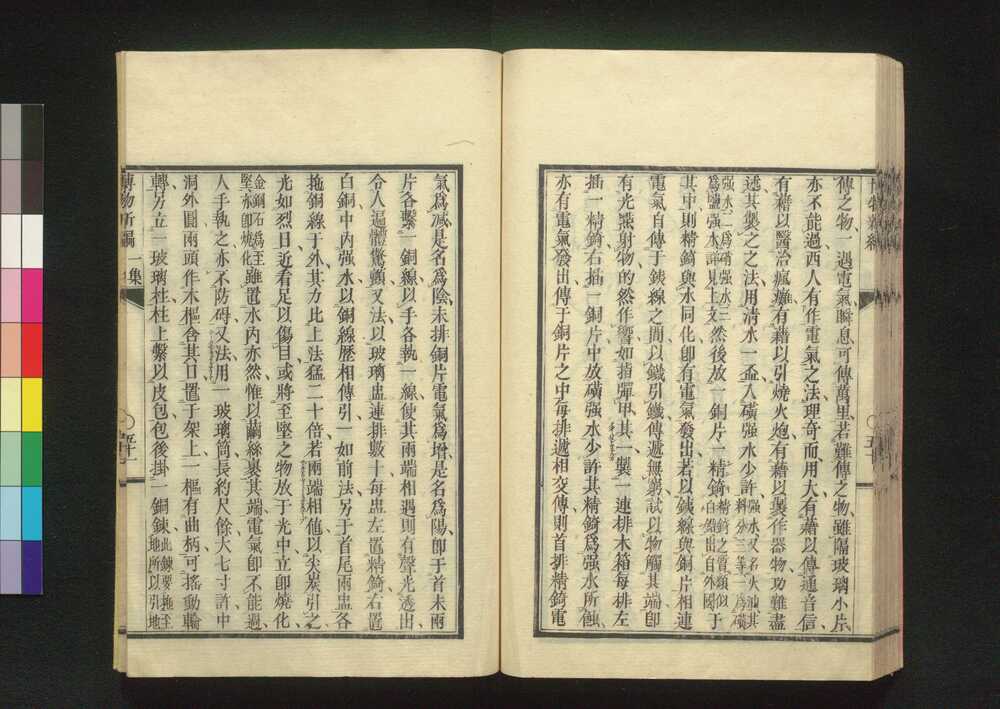 傳之物一遇電氣瞬息可傳萬里若難傳之物雖隔玻璃小片
亦不能過西人有作電氣之法理奇而用大有藉以傳通音信
有藉以醫治瘋癱有藉以引燒火炮有藉以製作器物功難盡
述其製之之法用清水一盃入磺强水少許强水又名火油其料分三等一爲磺
强水二爲硝强水三爲鹽强水詳見上文然後放一銅片一精錡精錡之質類似白鉛出自外國于
其中則精錡與水同化卽有電氣發出若以銕線與銅片相連
電氣自傳于銕線之間以鐵引鐵傳遞無窮試以物觸其端卽
有光燕射物的然作響如指彈甲其一製一連排木箱每排左
插一精錡右插一銅片中放磺强水少許其精錡爲强水所蝕
亦有電氣發出傳于銅片之中每排遞相交傳則首排精錡電
氣爲减是名爲陰末排銅片電氣爲增是名爲陽卽于首末兩
片各繫一銅線以手各執一線使其兩端相遇則有聲光透出
令人遍體驚顫又法以玻璃盅連排數十每盅左置精錡右置
白銅中內强水以銅線歷相傳引一如前法另于首尾兩盅各
拖銅線于外其力比上法猛二十倍若兩端相他以尖炭引之
光如烈日近看足以傷目或將至堅之物放于光中立卽燒化
金銅石爲至堅亦卽燒化雖置水內亦然惟以繭絲裹其端電氣卽不能過
人手執之亦不防碍又法用一玻璃筒長約尺餘大七寸許中
洞外圓兩頭作木樞含其口置于架上一樞有曲柄可搖動輪
轉另立一玻璃柱柱上繫以皮包包後掛一銅鍊此鍊要拖至地所以引地
博物新編 一集